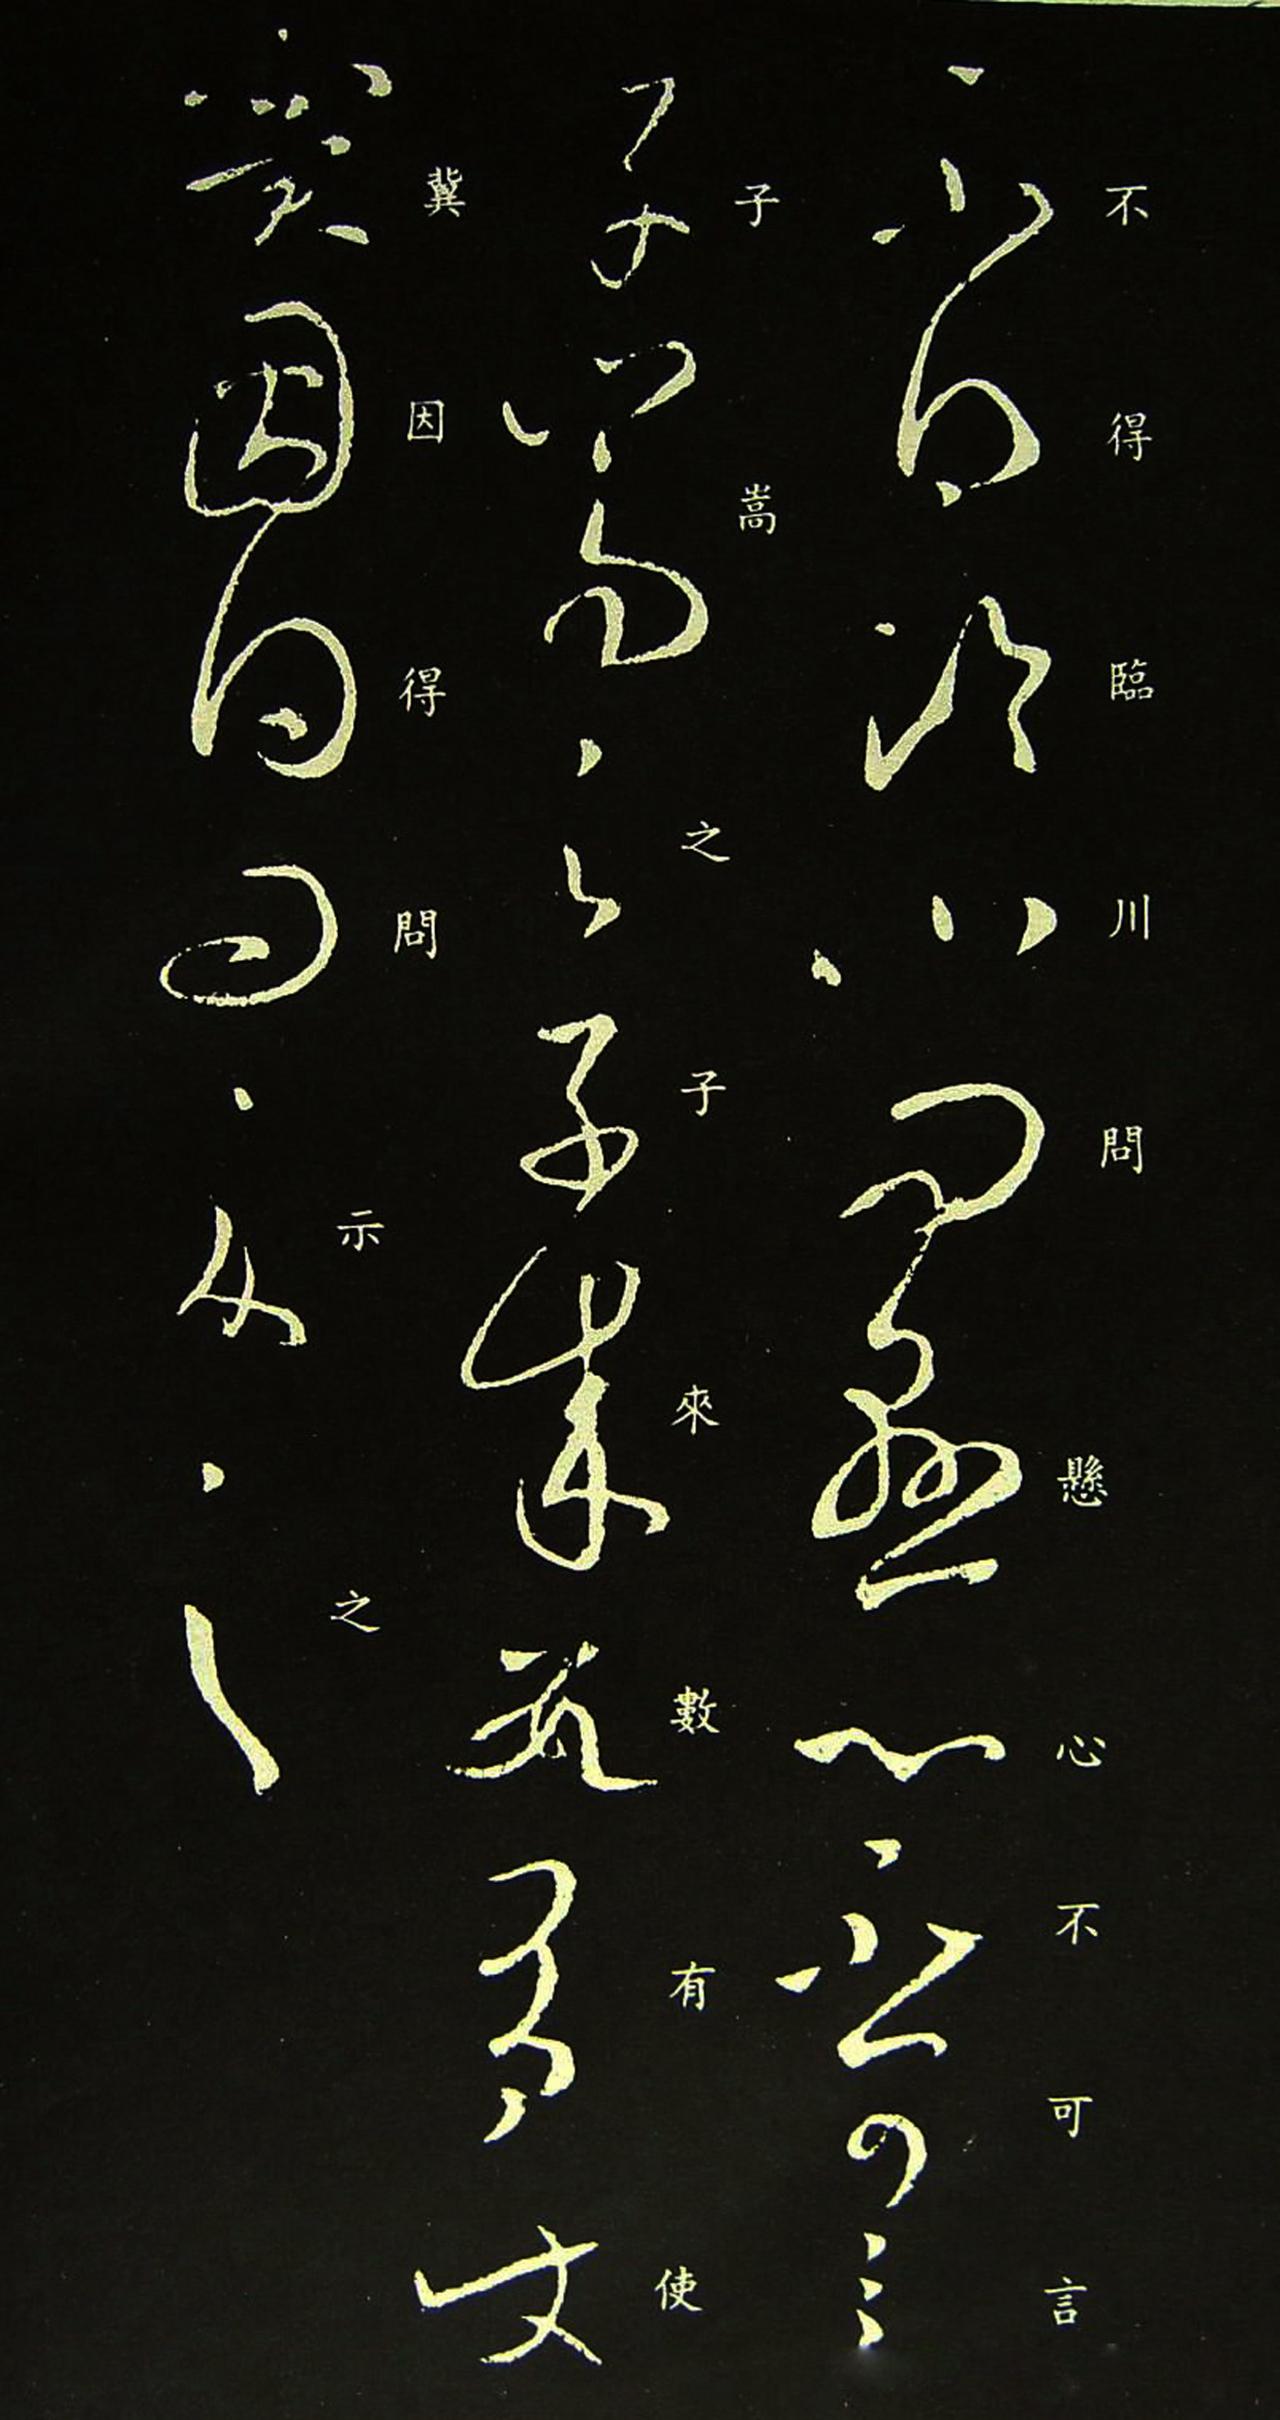 不得臨川問懸心不可言
子嵩之子來數有使
冀因得問示之